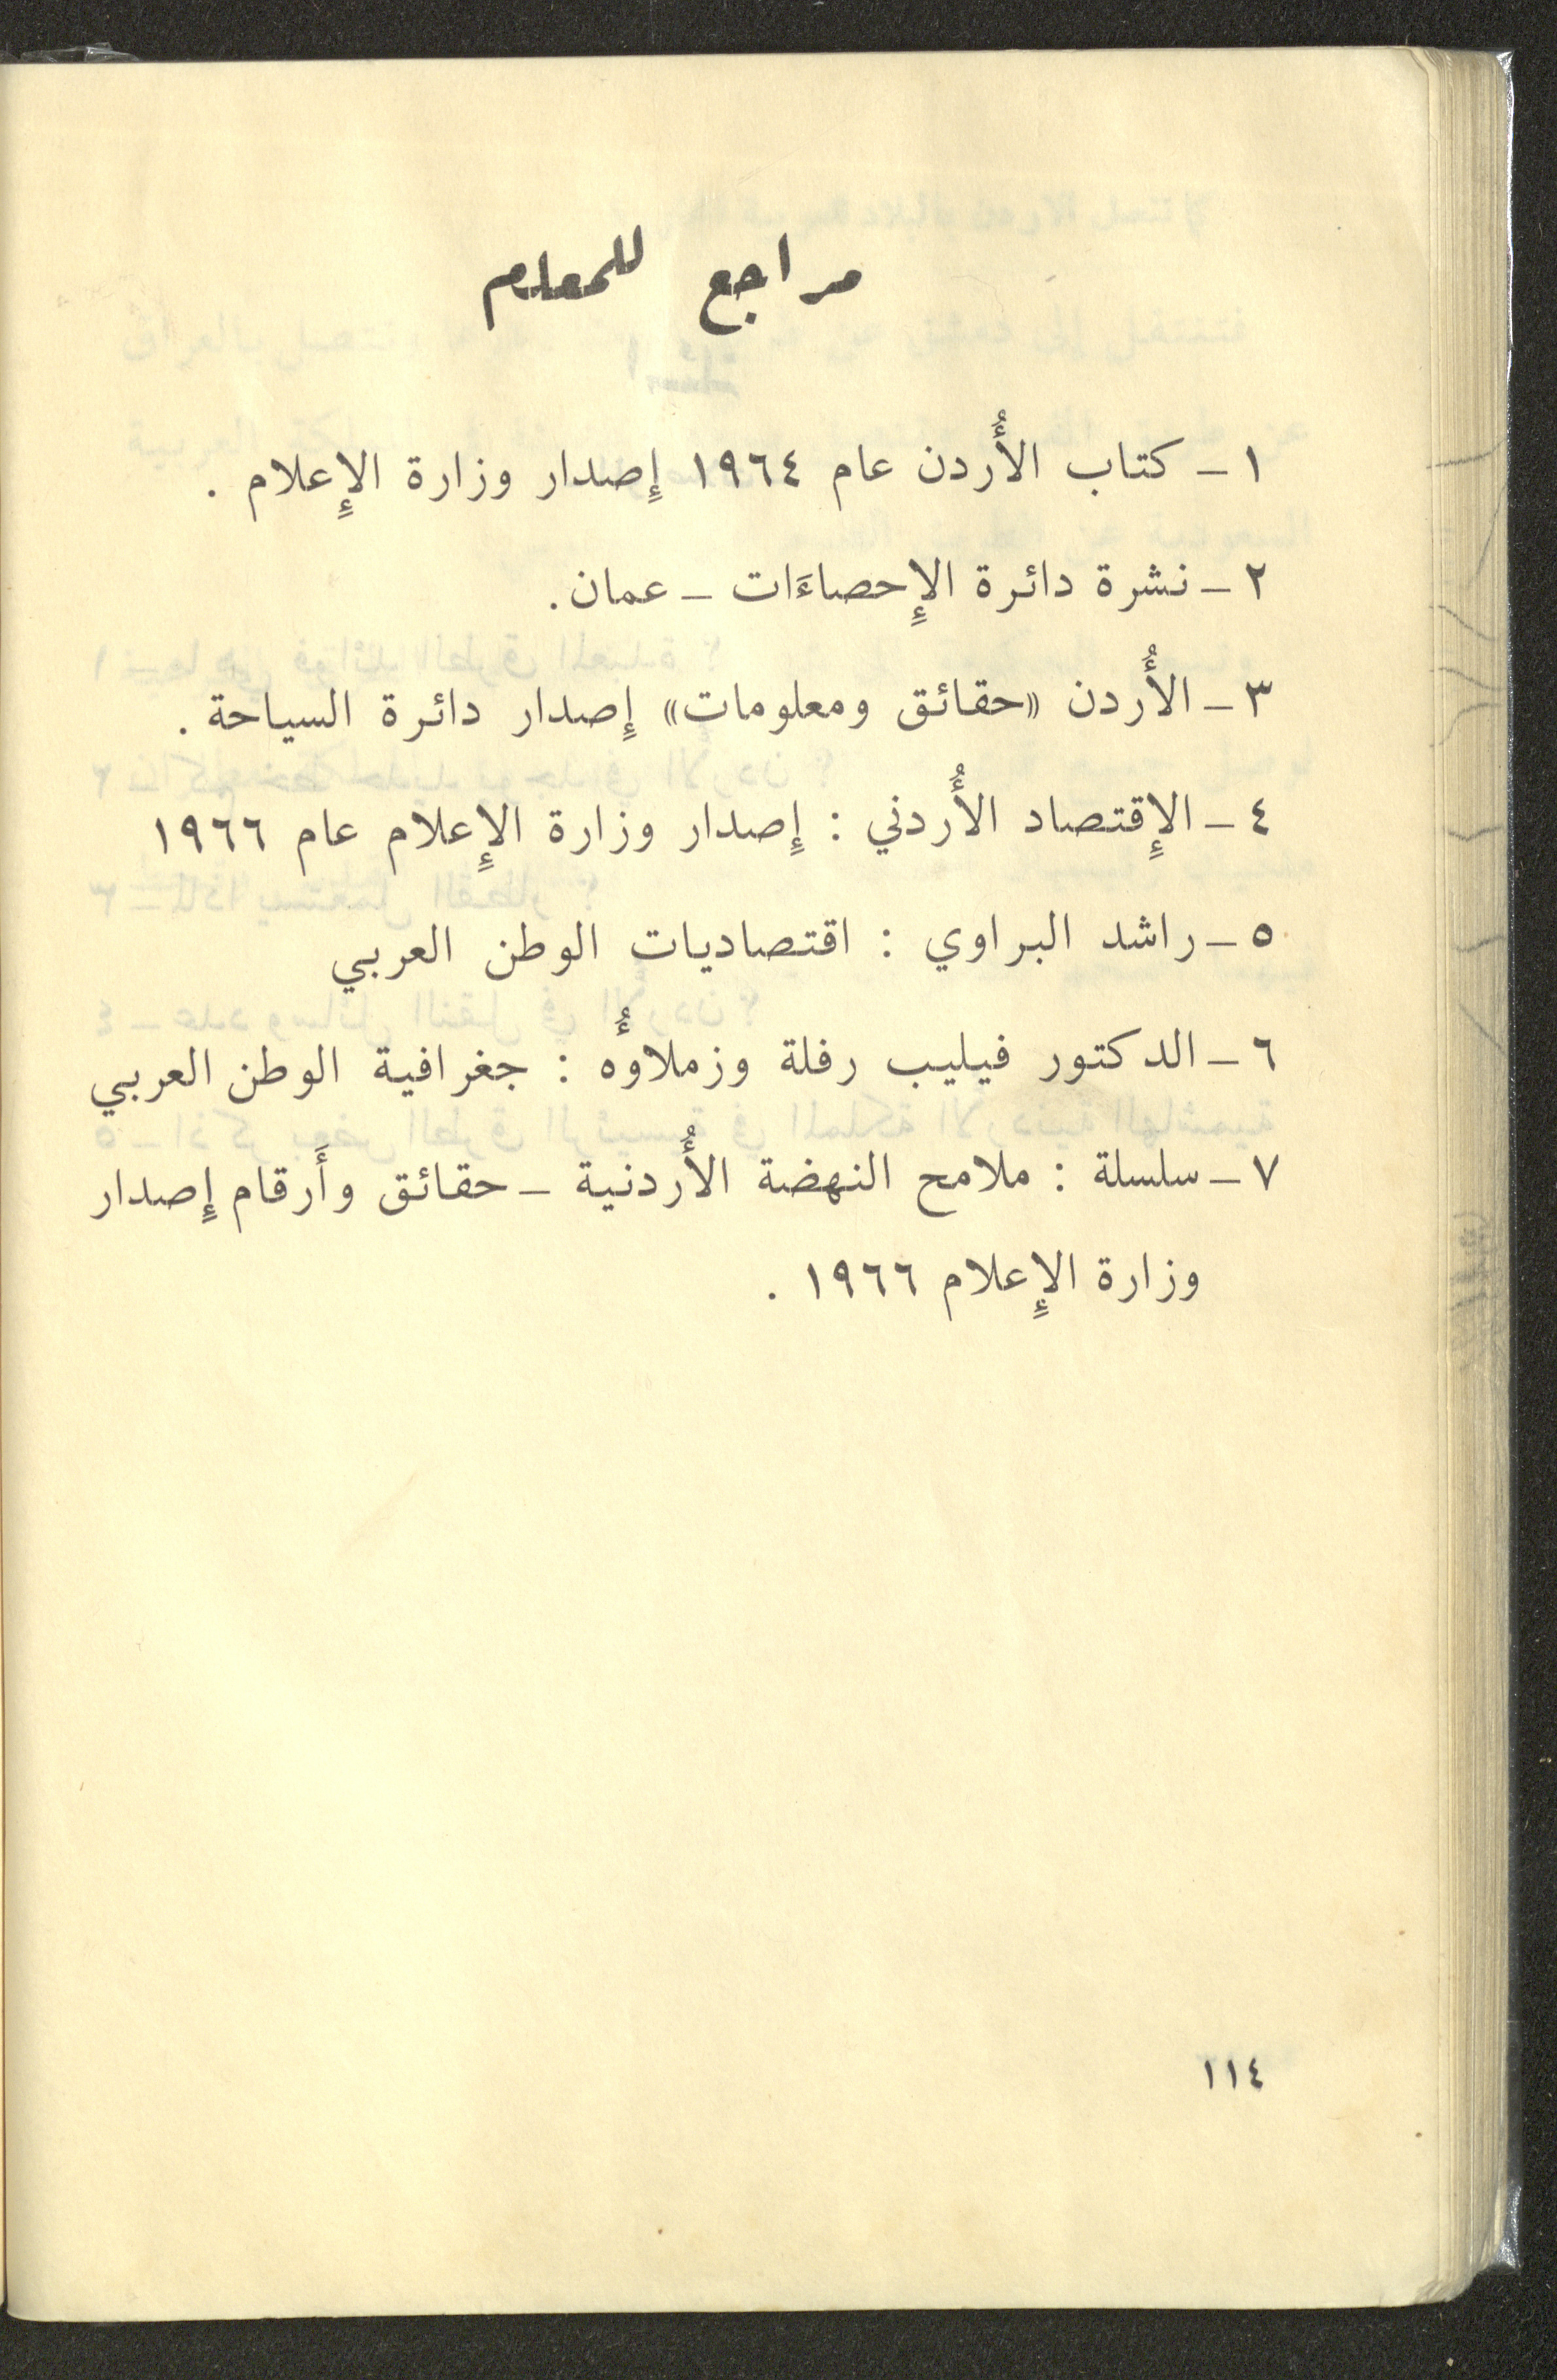 مراجع للمعلم
١ – كتاب الأُردن عام ١٩٦٤ إِصدار وزارة الإِعلام .
٢ – نشرة دائرة الإِحصاءَات – عمان.
٣ – الأُردن «حقائق ومعلومات» إِصدار دائرة السياحة .
٤ – الإِقتصاد الأُردني : إِصدار وزارة الإِعلام عام ١٩٦٦
٥ – راشد البراوي : اقتصاديات الوطن العربي
٦ – الدكتور فيليب رفلة وزملاؤُه : جغرافية الوطن العربي
٧ – سلسلة : ملامح النهضة الأُردنية – حقائق وأَرقام إِصدار
وزارة الإِعلام ١٩٦٦ .
١١٤